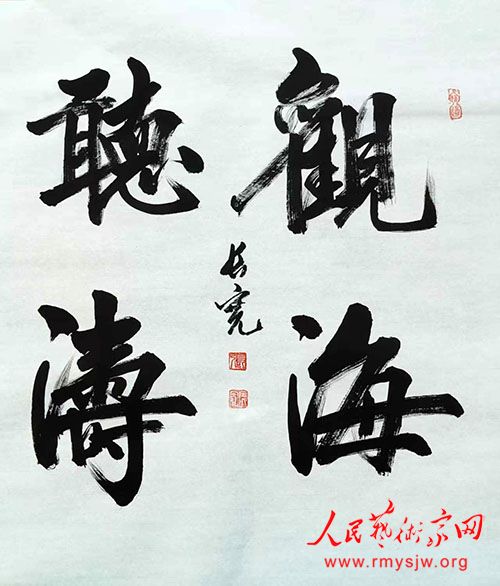 觀海
聽濤
長寬
人民藝術家网
www.rmysjw.org